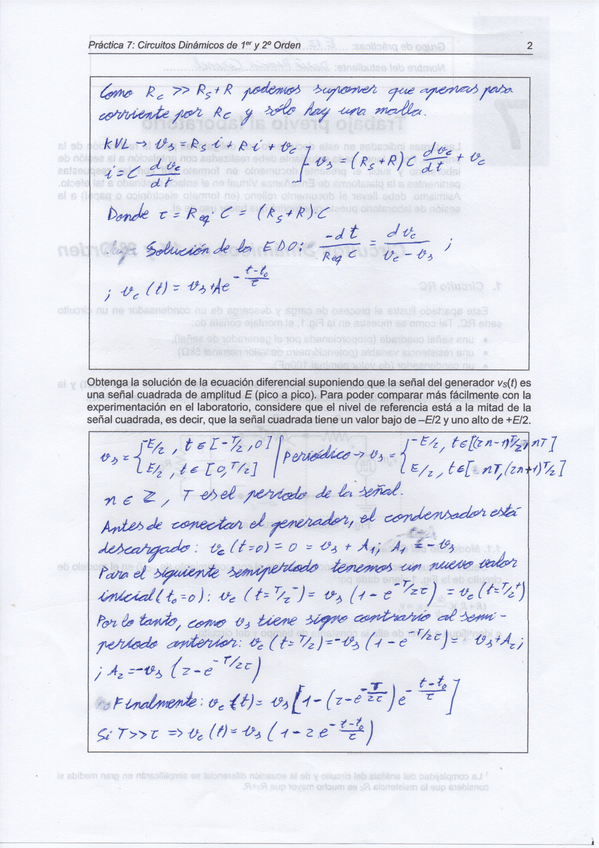 Práctica 7: Circuitos Dinámicos de 1er y 2º Orden 2
Como Rc >> Rs+R podemos suponer que apenas pasa
corriente por Rc y sólo hay una malla.
KVL → vs = Rs i + R i + vc
i = C d vc / dt ] vs = (Rs+R) C d vc / dt + vc
Donde τ = Req · C = (Rs+R)·C
Solución de la EDO: -dt / Req C = d vc / vc - vs ;
; vc (t) = vs + A e^(- (t-t0)/τ)
Obtenga la solución de la ecuación diferencial suponiendo que la señal del generador vS(t) es
una señal cuadrada de amplitud E (pico a pico). Para poder comparar más fácilmente con la
experimentación en el laboratorio, considere que el nivel de referencia está a la mitad de la
señal cuadrada, es decir, que la señal cuadrada tiene un valor bajo de –E/2 y uno alto de +E/2.
vs = { -E/2, t ∈ [-T/2, 0] | Periódico → vs = { -E/2, t ∈ [(2n-1)T/2, nT]
E/2, t ∈ [0, T/2] E/2, t ∈ [nT, (2n+1)T/2]
n ∈ Z, T es el período de la señal.
Antes de conectar el generador, el condensador está
descargado: vc (t=0) = 0 = vs + A1; A1 = -vs
Para el siguiente semiperíodo tenemos un nuevo valor
inicial (t0=0): vc (t=T/2⁻) = vs (1 - e^(-T/2τ)) = vc (t=T/2⁺)
Por lo tanto, como vs tiene signo contrario al semi-
período anterior: vc (t=T/2) = -vs (1 - e^(-T/2τ)) = vs + A2;
; A2 = -vs (2 - e^(-T/2τ))
Finalmente: vc (t) = vs [1 - (2 - e^(-T/2τ)) e^(- (t-t0)/τ)]
Si T >> τ ⇒ vc (t) = vs (1 - 2 e^(- (t-t0)/τ))